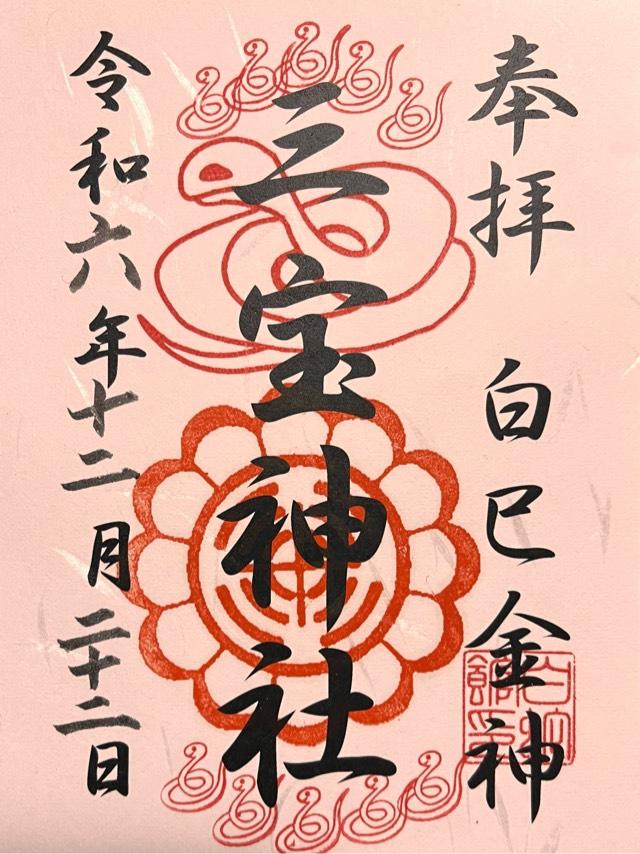 奉拝
白巳金神
三宝神社
令和六年十二月二十二日